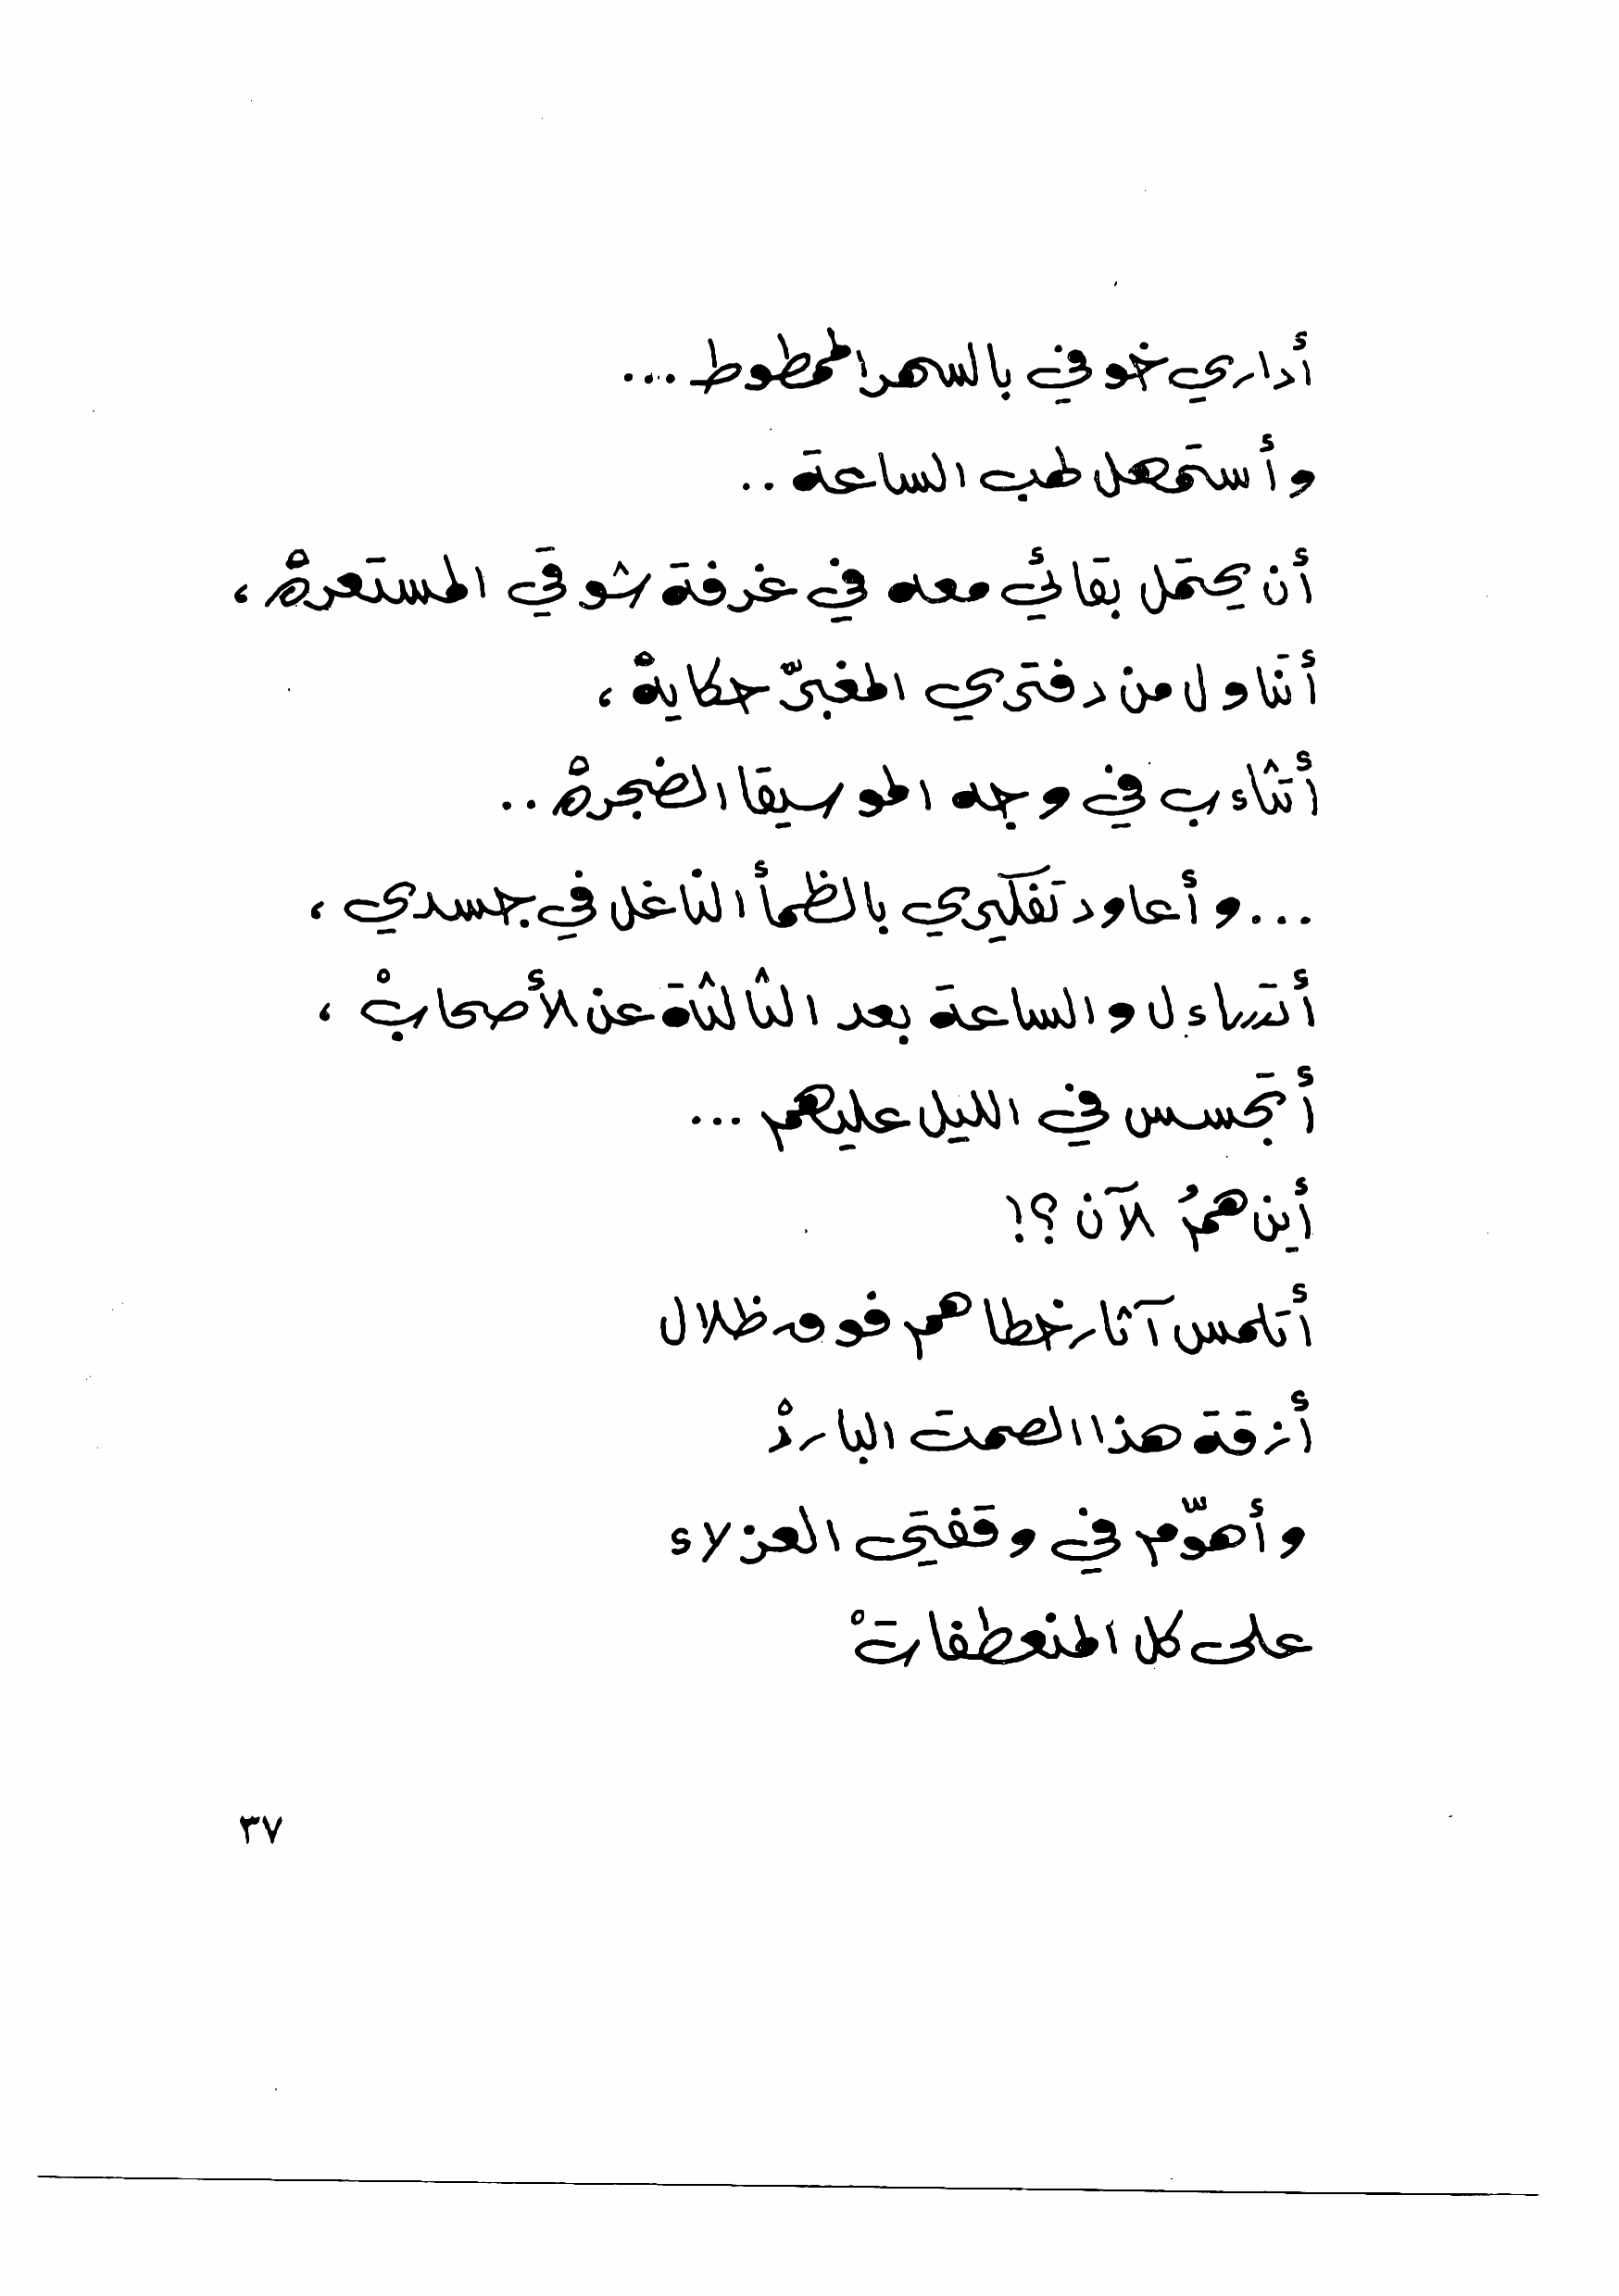 أداري خوفي بالسهر الممطوط ....
وأستمهل طب الساعة ..
أن يحتمل بقائي معه في غرفة شوقي المستعرهْ ،
أتناول من دفتري المغبرّ حكايهْ ،
أتثاءب في وجه الموسيقا الضجرهْ ..
... وأعاود تفكيري بالظمأ الناغل في جسدي ،
أتساءل والساعة بعد الثالثة عن الأصحابْ ،
أتجسس في الليل عليهم ...
أين همُ الآن ؟!
أتلمس آثار خطاهم فوق ظلال
أزقة هذا الصمت الباردْ
وأهوّم في وقفتي العزلاء
على كل المنعطفاتْ
٣٧